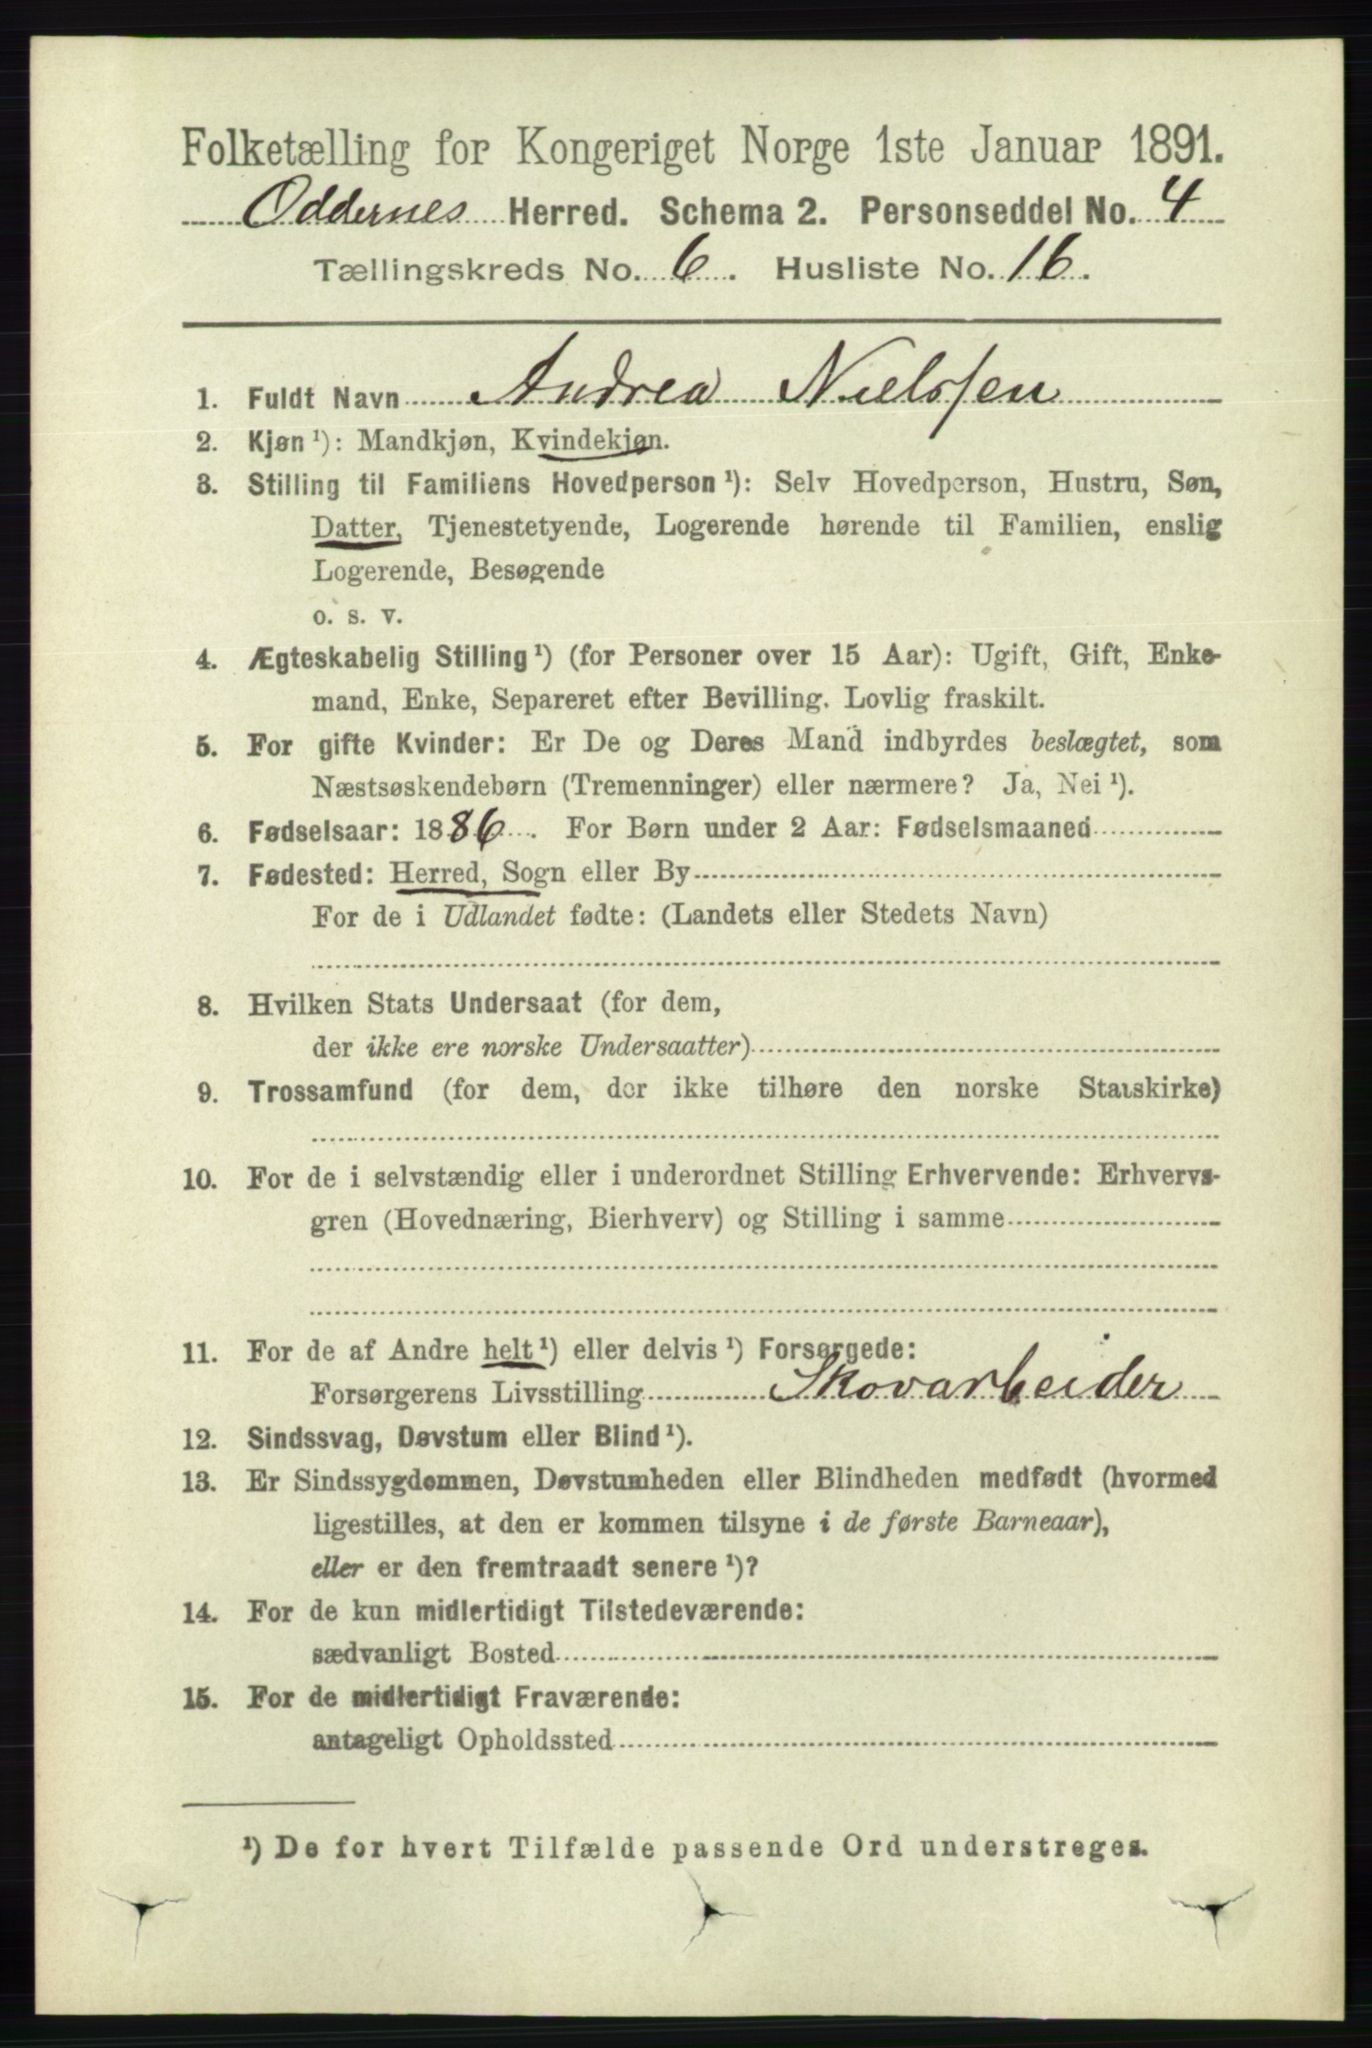 Folketælling for Kongeriget Norge 1ste Januar 1891.
Oddernes Herred. Schema 2. Personseddel No. 4
Tællingskreds No. 6. Husliste No. 16.
1. Fuldt Navn Andrea Nielsen
2. Kjøn ¹): Mandkjøn, Kvindekjøn.
3. Stilling til Familiens Hovedperson ¹): Selv Hovedperson, Hustru, Søn,
Datter, Tjenestetyende, Logerende hørende til Familien, enslig
Logerende, Besøgende
o. s. v.
4. Ægteskabelig Stilling ¹) (for Personer over 15 Aar): Ugift, Gift, Enke-
mand, Enke, Separeret efter Bevilling. Lovlig fraskilt.
5. For gifte Kvinder: Er De og Deres Mand indbyrdes beslægtet, som
Næstsøskendebørn (Tremenninger) eller nærmere? Ja, Nei ¹).
6. Fødselsaar: 1886. For Børn under 2 Aar: Fødselsmaaned
7. Fødested: Herred, Sogn eller By
For de i Udlandet fødte: (Landets eller Stedets Navn)
8. Hvilken Stats Undersaat (for dem,
der ikke ere norske Undersaatter)
9. Trossamfund (for dem, der ikke tilhøre den norske Statskirke)
10. For de i selvstændig eller i underordnet Stilling Erhvervende: Erhvervs-
gren (Hovednæring, Bierhverv) og Stilling i samme
11. For de af Andre helt ¹) eller delvis ¹) Forsørgede:
Forsørgerens Livsstilling Skovarbeider
12. Sindssvag, Døvstum eller Blind ¹).
13. Er Sindssygdommen, Døvstumheden eller Blindheden medfødt (hvormed
ligestilles, at den er kommen tilsyne i de første Barneaar),
eller er den fremtraadt senere ¹)?
14. For de kun midlertidigt Tilstedeværende:
sædvanligt Bosted
15. For de midlertidigt Fraværende:
antageligt Opholdssted
¹) De for hvert Tilfælde passende Ord understreges.